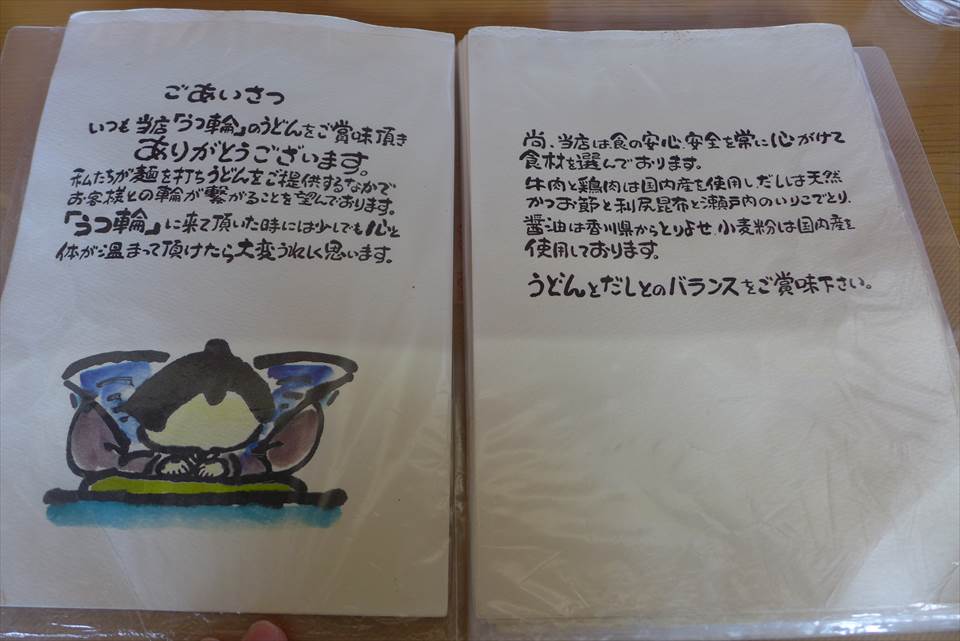 ごあいさつ
いつも当店「うつ輪」のうどんをご賞味頂き
ありがとうございます。
私たちが麺を打ちうどんをご提供するなかで
お客様との輪が繋がることを望んでおります。
「うつ輪」に来て頂いた時には少しでも心と
体が温まって頂けたら大変うれしく思います。
尚、当店は食の安心、安全を常に心がけて
食材を選んでおります。
牛肉と鶏肉は国内産を使用しだしは天然
かつお節と利尻昆布と瀬戸内のいりこでとり、
醤油は香川県からとりよせ、小麦粉は国内産を
使用しております。
うどんとだしとのバランスをご賞味下さい。